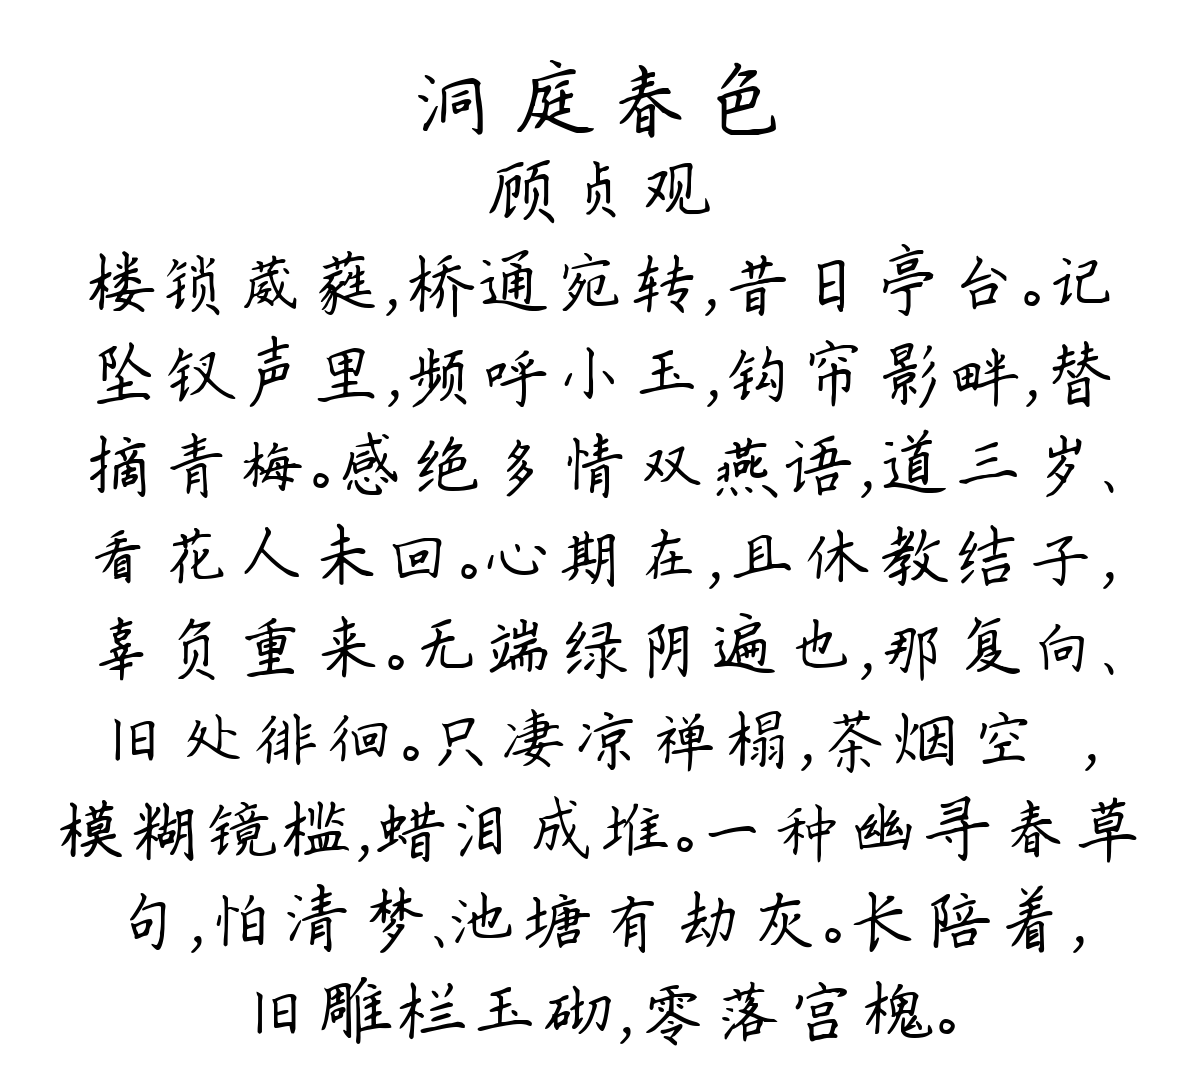 洞庭春色
顾贞观
楼锁葳蕤,桥通宛转,昔日亭台。记
坠钗声里,频呼小玉,钩帘影畔,替
摘青梅。感绝多情双燕语,道三岁、
看花人未回。心期在,且休教结子,
辜负重来。无端绿阴遍也,那复向、
旧处徘徊。只凄凉禅榻,茶烟空 ,
模糊镜槛,蜡泪成堆。一种幽寻春草
句,怕清梦、池塘有劫灰。长陪着,
旧雕栏玉砌,零落宫槐。